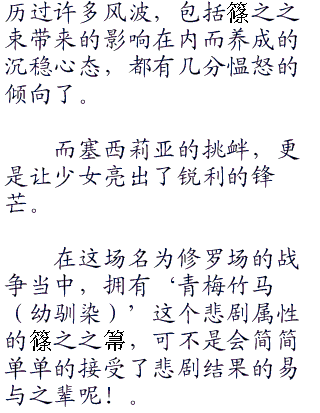 历过许多风波，包括篠之之
束带来的影响在内而养成的
沉稳心态，都有几分愠怒的
倾向了。
而塞西莉亚的挑衅，更
是让少女亮出了锐利的锋
芒。
在这场名为修罗场的战
争当中，拥有‘青梅竹马
（幼驯染）’这个悲剧属性
的篠之之箒，可不是会简简
单单的接受了悲剧结果的易
与之辈呢！。